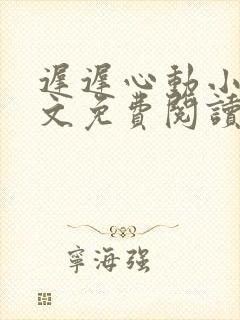 遲遲心動小
文免費閱讀
寧海强